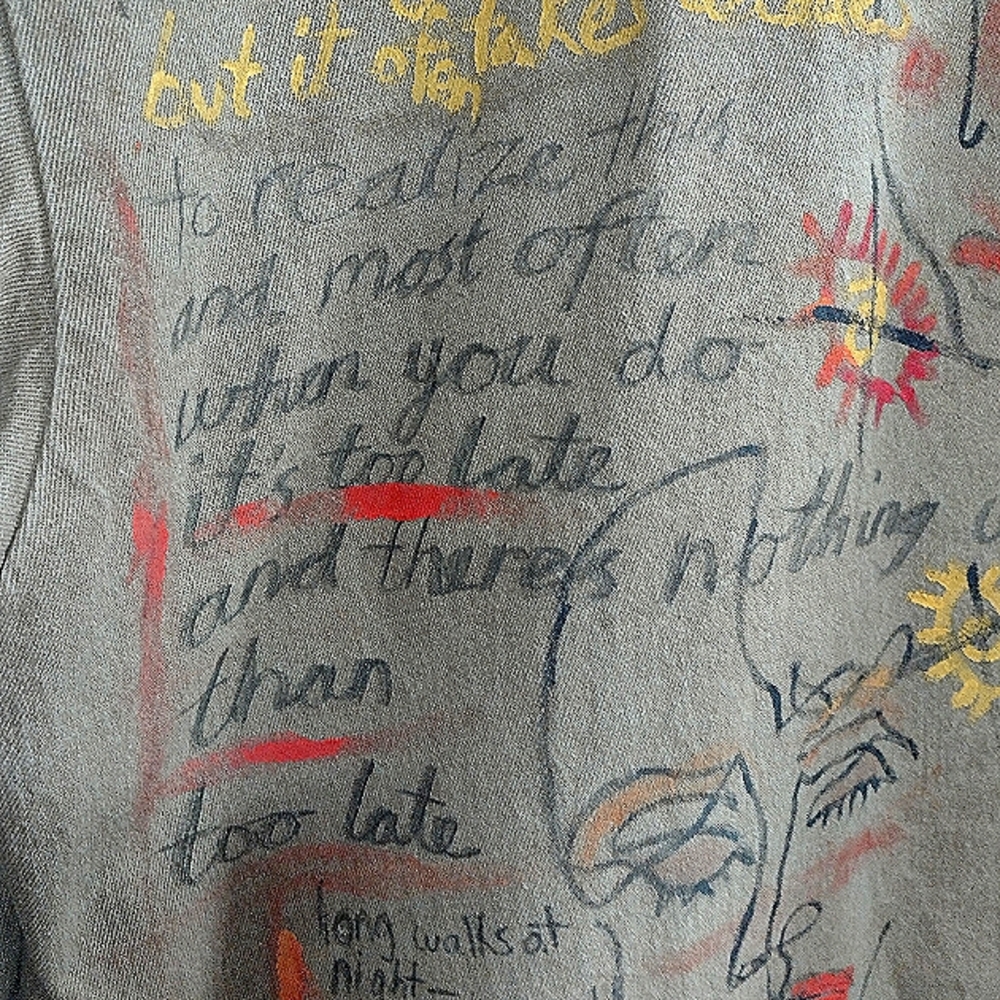 but it often takes
to realize this
and most often
when you do
it's too late
and there's nothing
than
too late
long walks at
night—